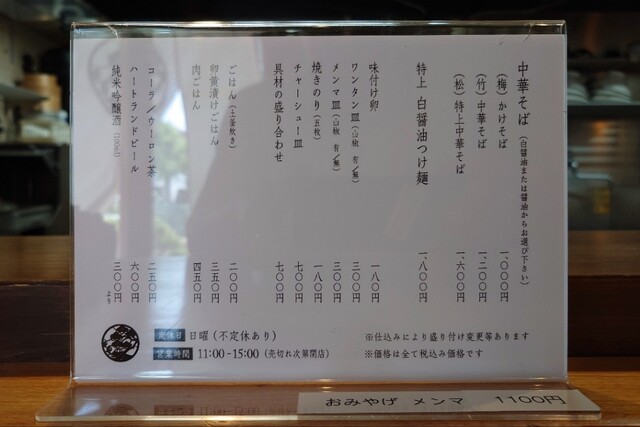 中華そば (白醤油または醤油からお選び下さい)
(梅) かけそば 一、〇〇〇円
(竹) 中華そば 一、二〇〇円
(松) 特上中華そば 一、六〇〇円
特上 白醤油つけ麺 一、八〇〇円
味付け卵 一八〇円
ワンタン皿 (山椒 有/無) 三〇〇円
メンマ皿 (山椒 有/無) 三〇〇円
焼きのり (五枚) 一八〇円
チャーシュー皿 七〇〇円
具材の盛り合わせ 七〇〇円
ごはん (土釜炊き) 二〇〇円
卵黄漬けごはん 三五〇円
肉ごはん 四五〇円
コーラ/ウーロン茶 二五〇円
ハートランドビール 六〇〇円
純米吟醸酒 (100ml) 三〇〇円より
定休日 日曜 (不定休あり)
営業時間 11:00-15:00 (売切れ次第閉店)
※仕込みにより盛り付け変更等あります
※価格は全て税込み価格です
おみやげ メンマ 1100円